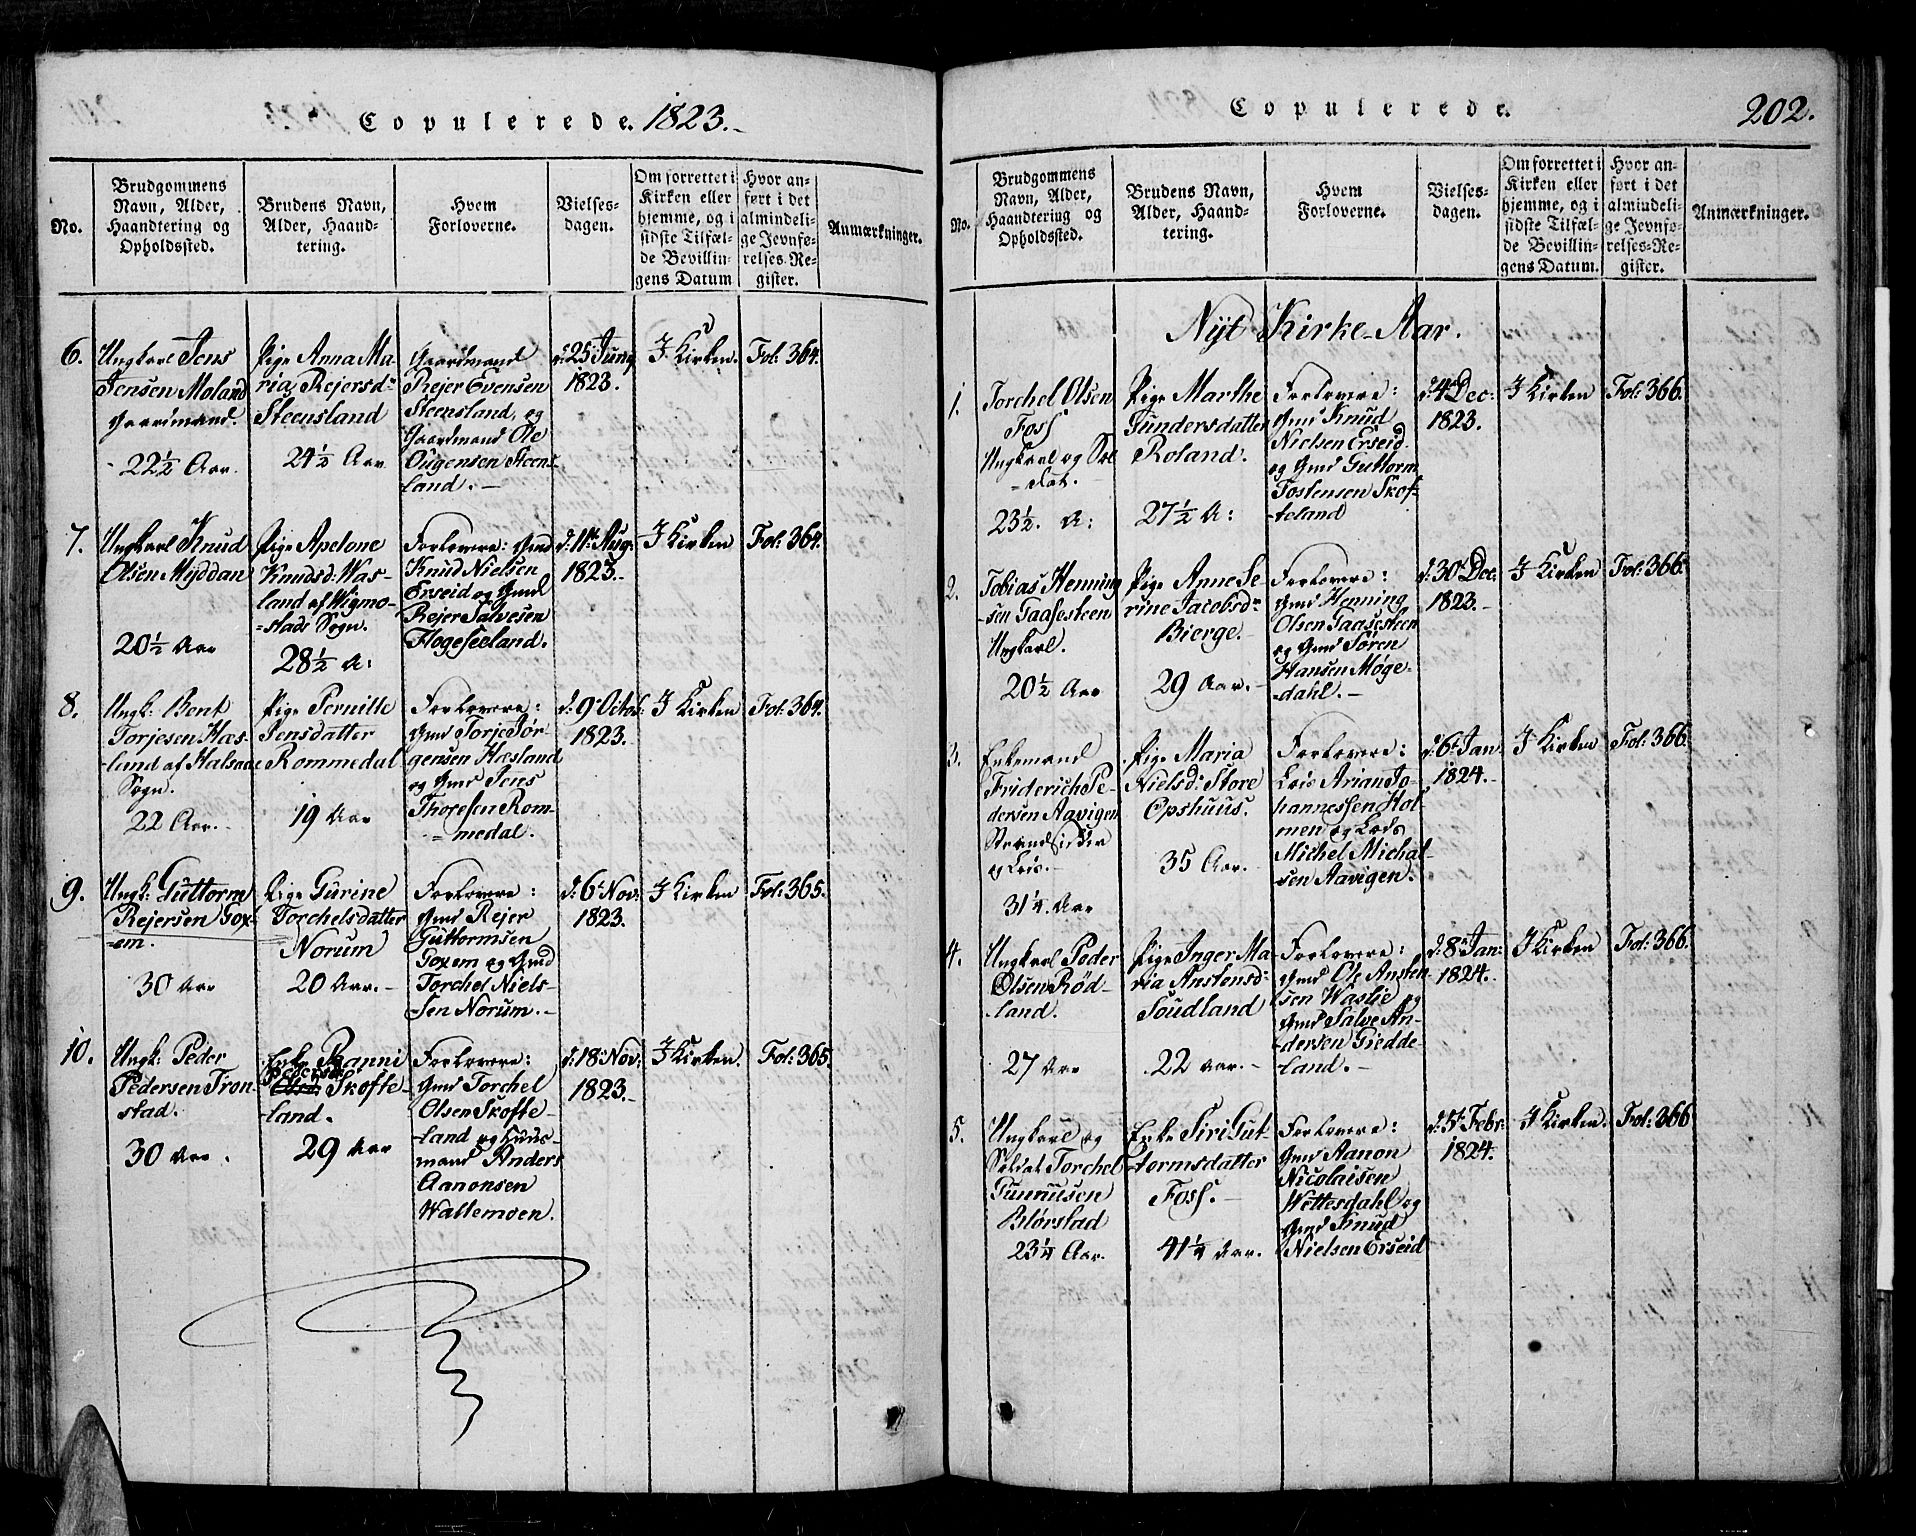 Copulerede. 1823.
No.
Brudgommens
Navn, Alder,
Haandtering og
Opholdssted.
Brudens Navn,
Alder, Haand-
tering.
Hvem
Forloverne.
Vielses-
dagen.
Om forrettet i
Kirken eller
hjemme, og i
sidste Tilfæl-
de Bevillin-
gens Datum
Hvor an-
ført i det
almindeli-
ge Jevnfø-
relses-Re-
gister.
Anmærkninger.
6.
Ungkarl Jens
Jensen Moland
Gaardmand.
22½ Aar.
Pige Anna Ma-
ria Rejersdr
Steensland
24½ Aar
Gaardmand
Rejer Evensen
Steensland, og
Gaardmand Ole
Ougensen Steens-
land.-
d: 25 Juny
1823.
I Kirken.
Fol: 364.
7.
Ungkarl Knud
Olsen Myddan
20½ Aar
Pige Apelone
Knudsd: Was-
land af Wigmo-
stads Sogn.
28½ A:
Forlovere: Gmd
Knud Nielsen
Erseid og Gmd
Rejer Salvesen
Høgeseeland.
d: 11te Aug:
1823.
I Kirken
Fol: 364.
8.
Ungk: Bent
Torjesen Hæs-
land af Halsaae
Sogn.
22 Aar.
Pige Pernille
Jensdatter
Rommedal
19 Aar
Forlovere:
Gmd Torje Jør-
gensen Hæsland
og Gmd Jens
Thoresen Rom-
medal.
d: 9 Octob:
1823.
I Kirken
Fol: 364.
9.
Ungk: Guttorm
Rejersen Fox-
em.
30 Aar
Pige Gurine
Torchelsdatter
Norum
20 Aar.-
Forlovere:
Gmd Rejer
Guttormsen
Foxem og Gmd
Torchel Niels-
sen Norum.-
d: 6t Nov:
1823.
I Kirken
Fol: 365.
10.
Ungk: Peder
Pedersen Tron-
stad.
30 Aar.
Enke Ranni
Skofte-
land.
29 Aar
Forlovere:
Gmd Torchel
Olsen Skofte-
land og Huus-
mand Anders
Aanonsen
Wallemoen.
d: 18 Nov:
1823.-
I Kirken.
Fol: 365.
Copulerede.
202.
No.
Brudgommens
Navn, Alder,
Haandtering og
Opholdssted.
Brudens Navn,
Alder, Haand-
tering.
Hvem
Forloverne.
Vielses-
dagen.
Om forrettet i
Kirken eller
hjemme, og i
sidste Tilfæl-
de Bevillin-
gens Datum.
Hvor an-
ført i det
almindeli-
ge Jevnfø-
relses-Re-
gister.
Anmærkninger.
Nyt Kirke-Aar.
1.
Torchel Olsen
Foss
Ungkarl og Sol-
dat.
23½. A:
Pige Marthe
Gundersdatter
Roland.
27½ A:
Forlovere:
Gmd Knud
Nielsen Erseid
og Gmd Guttorm
Tostensen Skof-
teland
d: 4 Dec:
1823.
I Kirken
Fol: 366.
2.
Tobias Henning-
sen Taasesteen
Ungkarl.
20½ Aar
Pige Anne Se-
rine Jacobsdr
Bierge.-
29 Aar.-
Forlovere:
Gmd Henning
Olsen Taasesteen
og Gmd Søren
Hansen Møge-
dahl.-
d: 30 Dec:
1823.-
I Kirken
Fol: 366.
3.
Enkemand
Friderich Pe-
dersen Aavigen
Strandsidder
og Lois.-
31¼. Aar
Pige Maria
Nielsd: Store
Opshuus.
35 Aar.
Forlovere:
Lois Arian Jo-
hannessen Hol-
men og Lods
Michel Michal-
sen Aavigen.
d: 6t Jan
1824.-
I Kirken
Fol: 366.
4.
Ungkarl Peder
Olsen Rød-
land.
27 Aar
Pige Inger Ma-
ria Anstensd:
Soudland
22 Aar.-
Forlovere:
Gmd Ole Ansten-
sen Waslie og
Gmd Salve An-
dersen Giedde-
land.-
d: 8 Jan:
1824.-
I Kirken
Fol: 366.
5.
Ungkarl og
Soldat Torchel
Gunnusen
Blørstad
23¼ Aar.
Enke Siri Gut-
tormsdatter
Foss.-
41¼ Aar.
Forlovere:
Gmd Aanon
Nicolaisen
Wettesdahl og
Gmd Knud
Nielsen Erseid
d: 5t Febr:
1824.
I Kirken.
Fol: 366